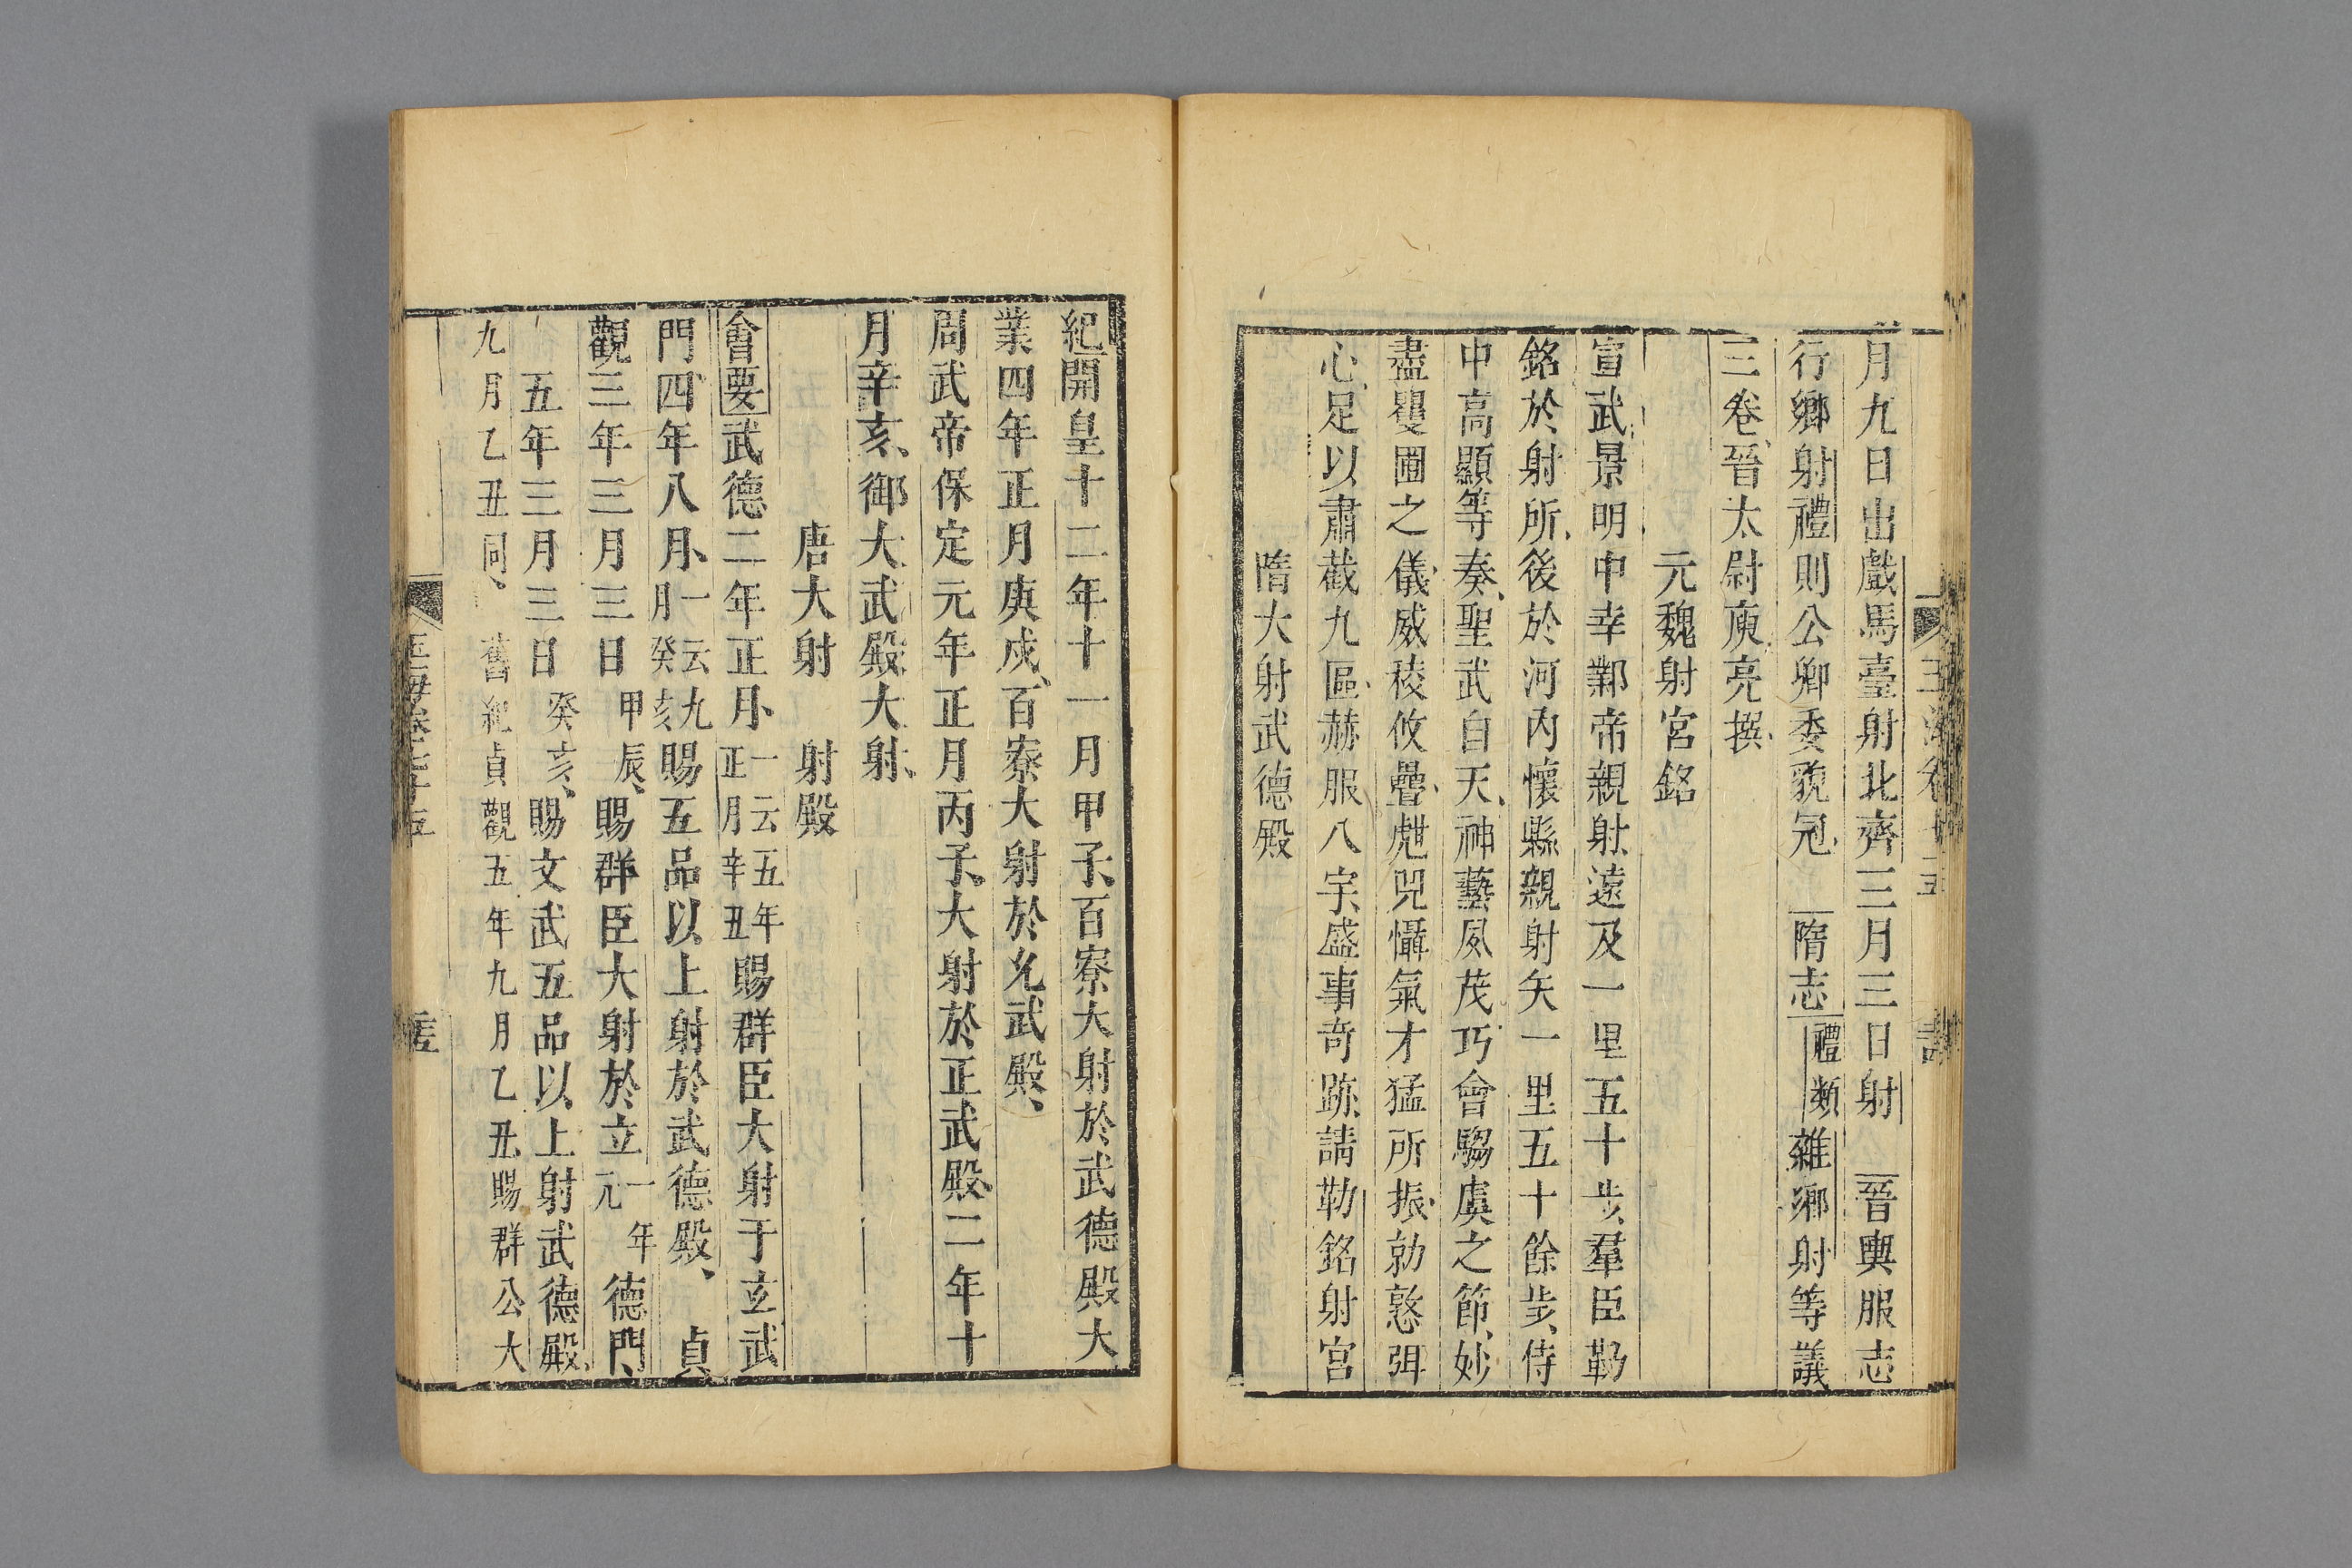 月九日出戲馬臺射北齊三月三日射 晉輿服志
行鄉射禮則公卿委貌冠 隋志禮類雜鄉射等議
三卷晉太尉庾亮撰
元魏射宮銘
宣武景明中幸鄴帝親射遠及一里五十步羣臣勒
銘於射所後於河內懷縣親射矢一里五十餘步侍
中高顯等奏聖武自天神藝夙茂巧會騶虞之節妙
盡矍圃之儀威稜攸疊兕懾氣才猛所振勍憝弭
心足以肅截九區赫服八宇盛事奇跡請勒銘射宮
隋大射武德殿
紀開皇十二年十一月甲子百寮大射於武德殿大
業四年正月庚戌百寮大射於允武殿
周武帝保定元年正月丙子大射於正武殿二年十
月辛亥御大武殿大射
唐大射 射殿
會要武德二年正月一云五年正月辛丑賜群臣大射于玄武
門四年八月一云九月癸亥賜五品以上射於武德殿 貞
觀三年三月三日甲辰賜群臣大射於立一年元德門
五年三月三日癸亥賜文武五品以上射武德殿
九月乙丑同 舊紀貞觀五年九月乙丑賜群公大